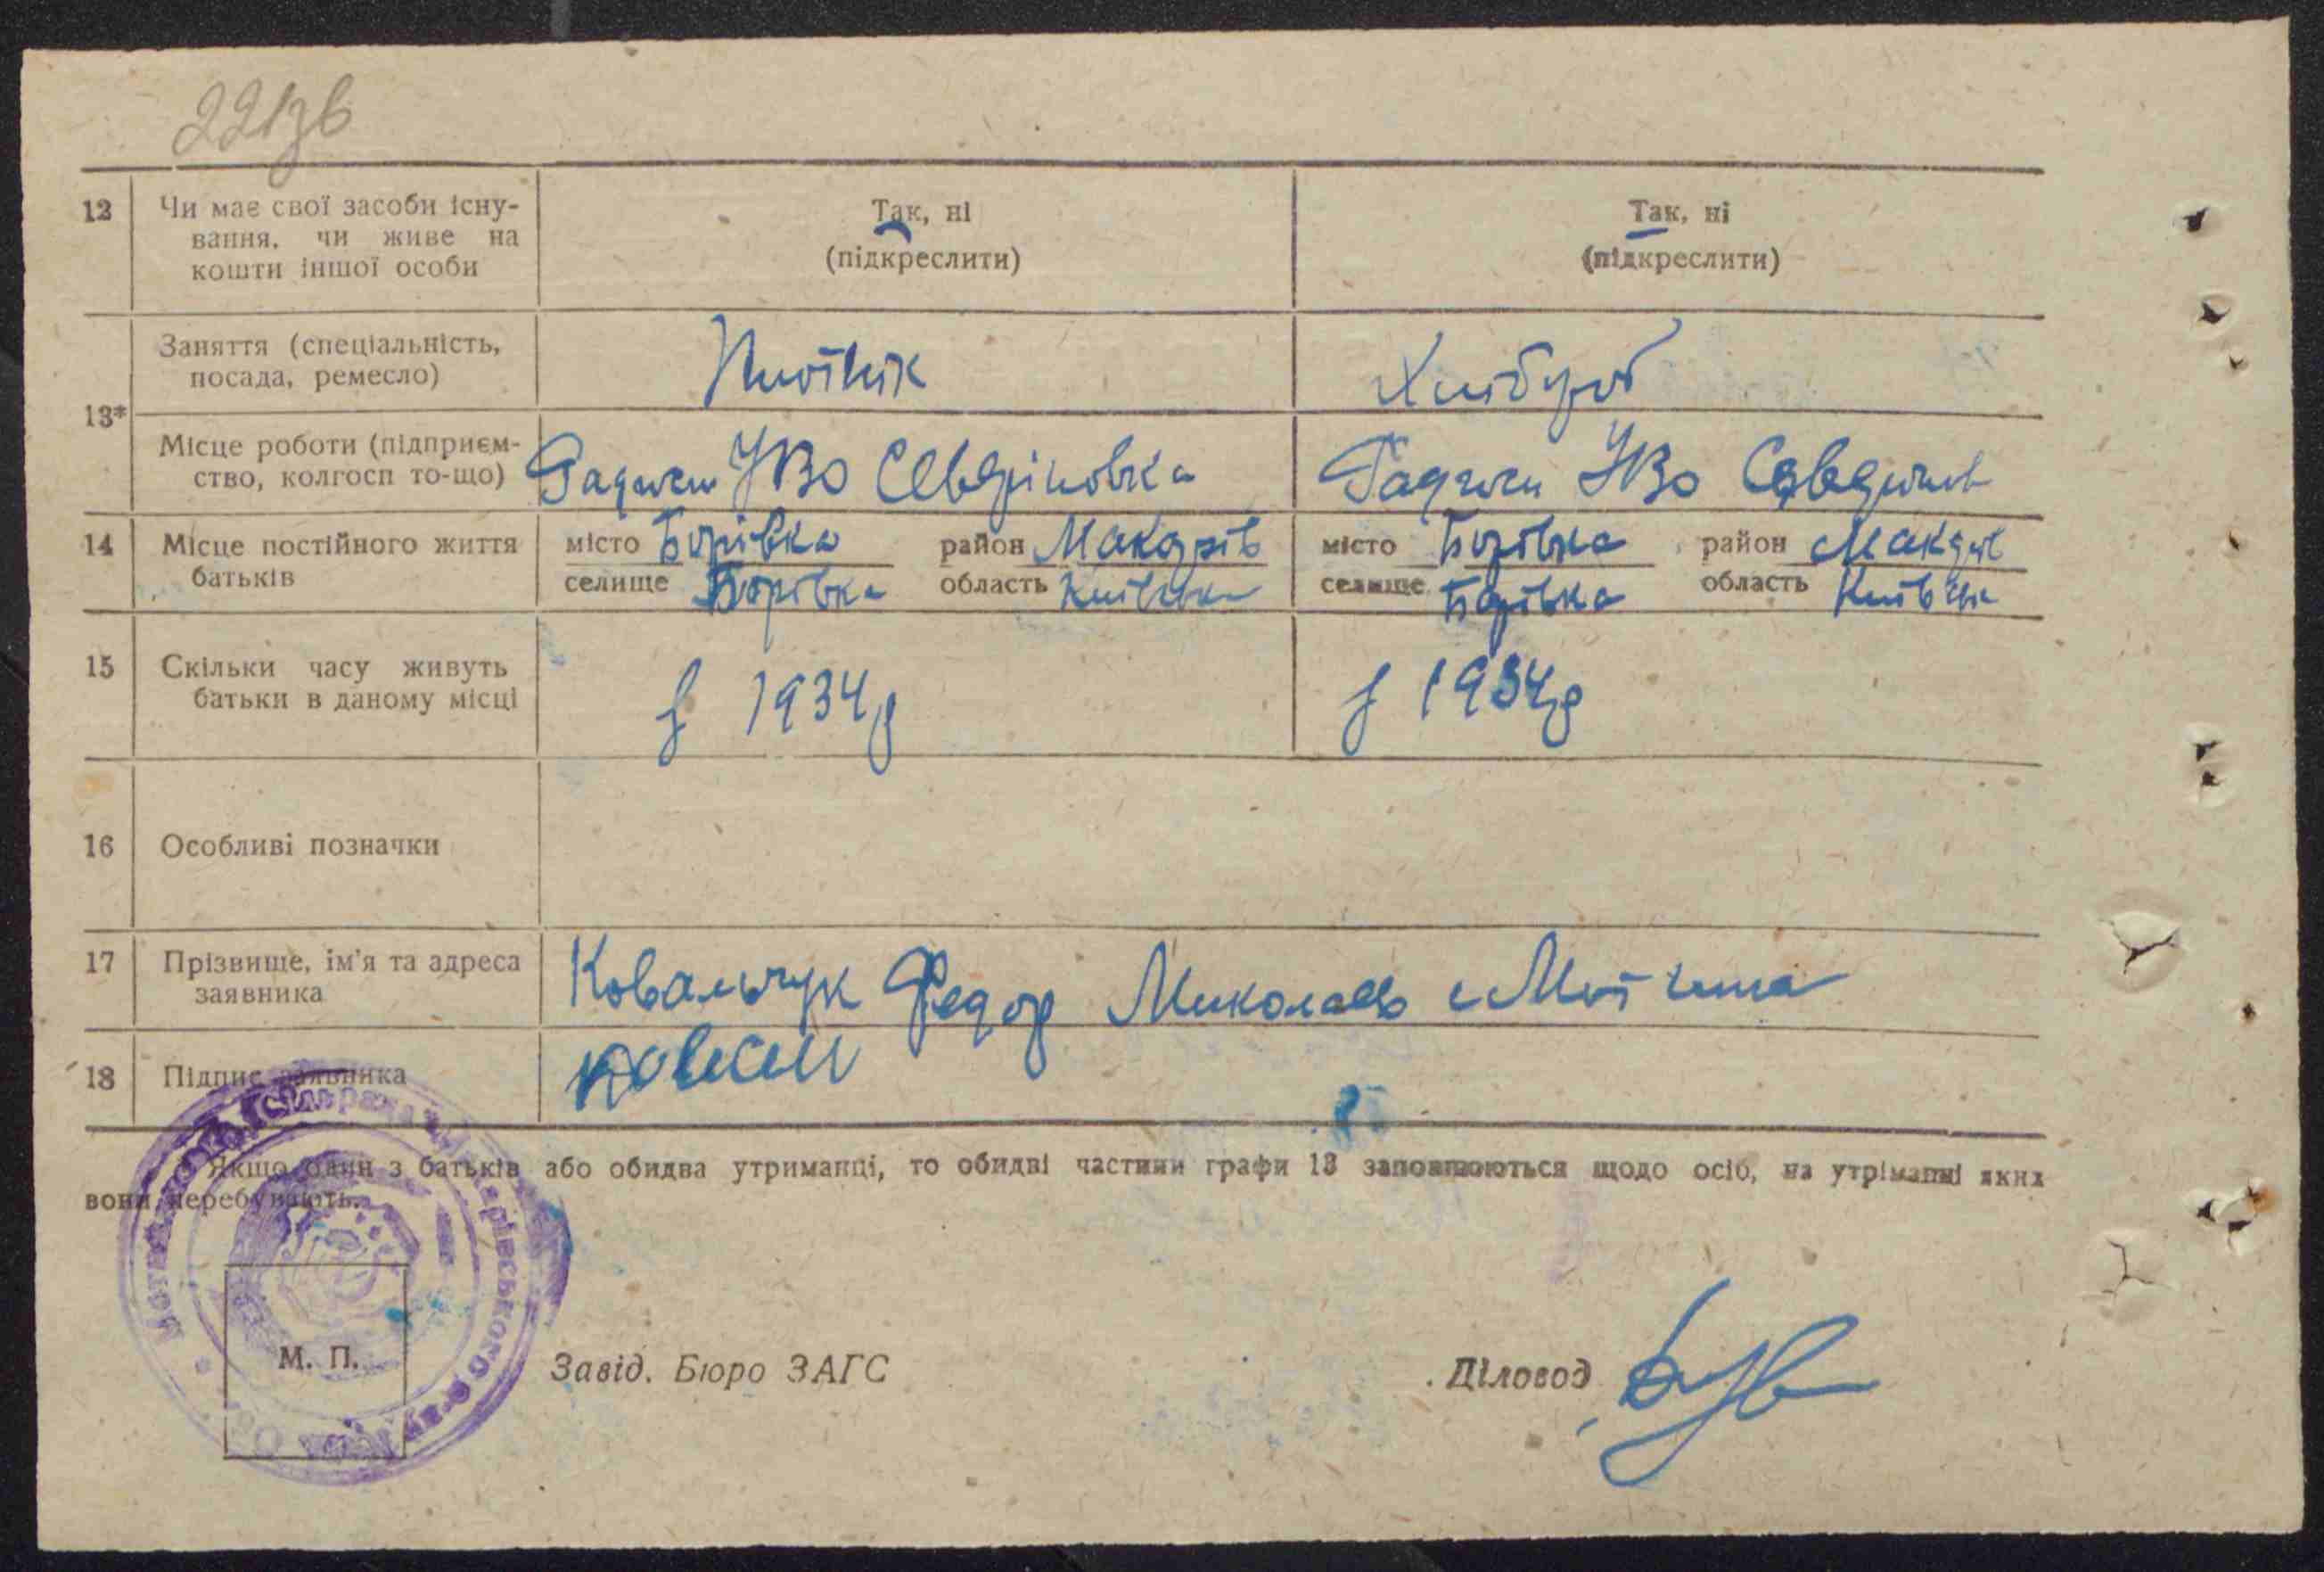 221зв
12 Чи має свої засоби існу-
вання, чи живе на
кошти іншої особи
Так, ні
(підкреслити)
Так, ні
(підкреслити)
13*
Заняття (спеціальність,
посада, ремесло)
Плотнік
Хлібороб
Місце роботи (підприєм-
ство, колгосп то-що)
Радгосп УВО Северіновка
Радгосп УВО
14 Місце постійного життя
батьків
місто Борівка район Макарів
селище Борівка область Київська
місто Борівка район Макарів
селище Борівка область Київська
15 Скільки часу живуть
батьки в даному місці
з 1934 р
з 1934 р
16 Особливі позначки
17 Прізвище, ім'я та адреса
заявника
Ковальчук Федор Миколаев
18 Підпис заявника
* Якщо один з батьків або обидва утриманці, то обидві частини графи 13 заповнюються щодо осіб, на утріманні яких
вони перебувають.
М. П.
Завід. Бюро ЗАГС
Діловод